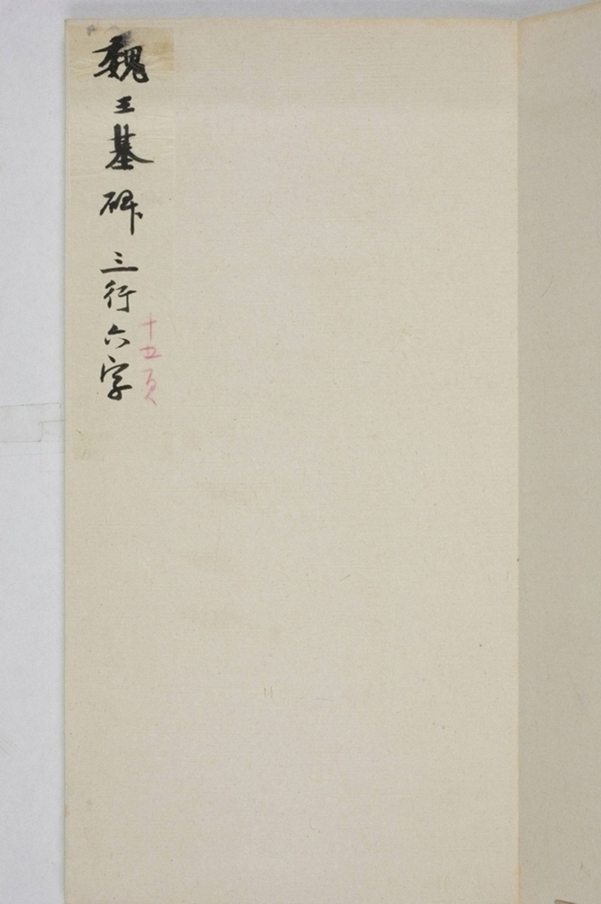 魏王基碑三行六字
十五頁